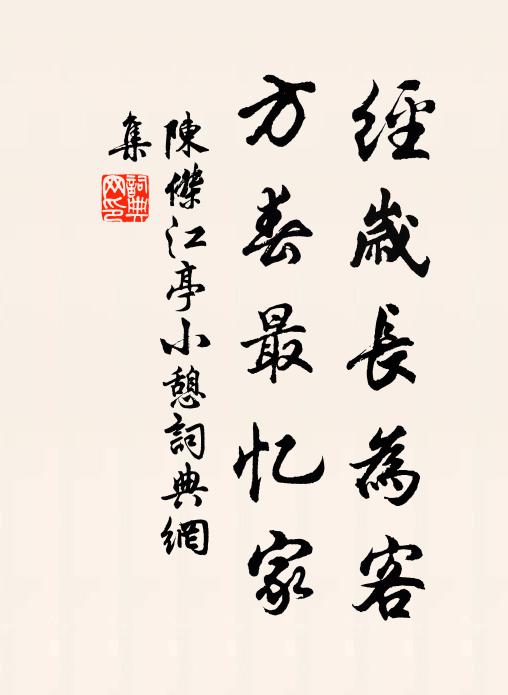 經歲長為客
方春最忆家
陳傑江亭小憩詞典網
集
詞典網印